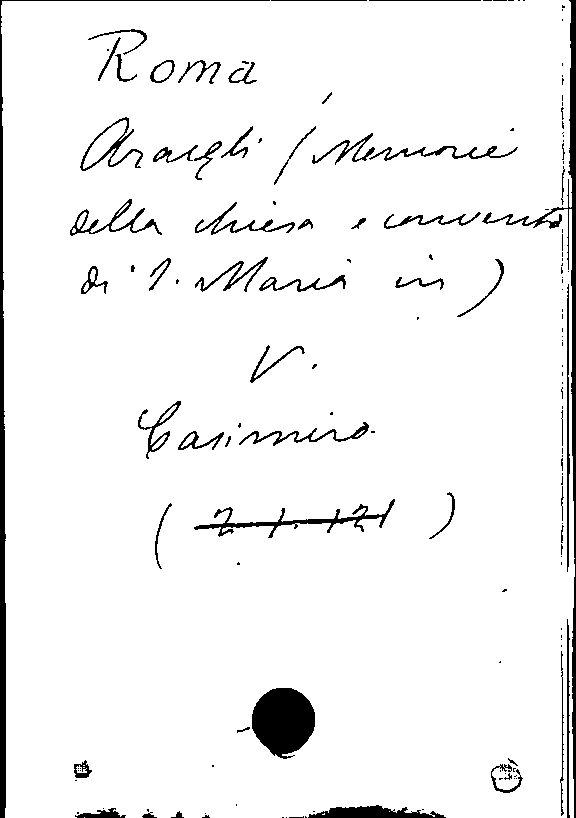 Roma
Aracęli (Memorie
della chiesa e convento
di S. Maria in)
V.
Casimiro
(2.1.121)